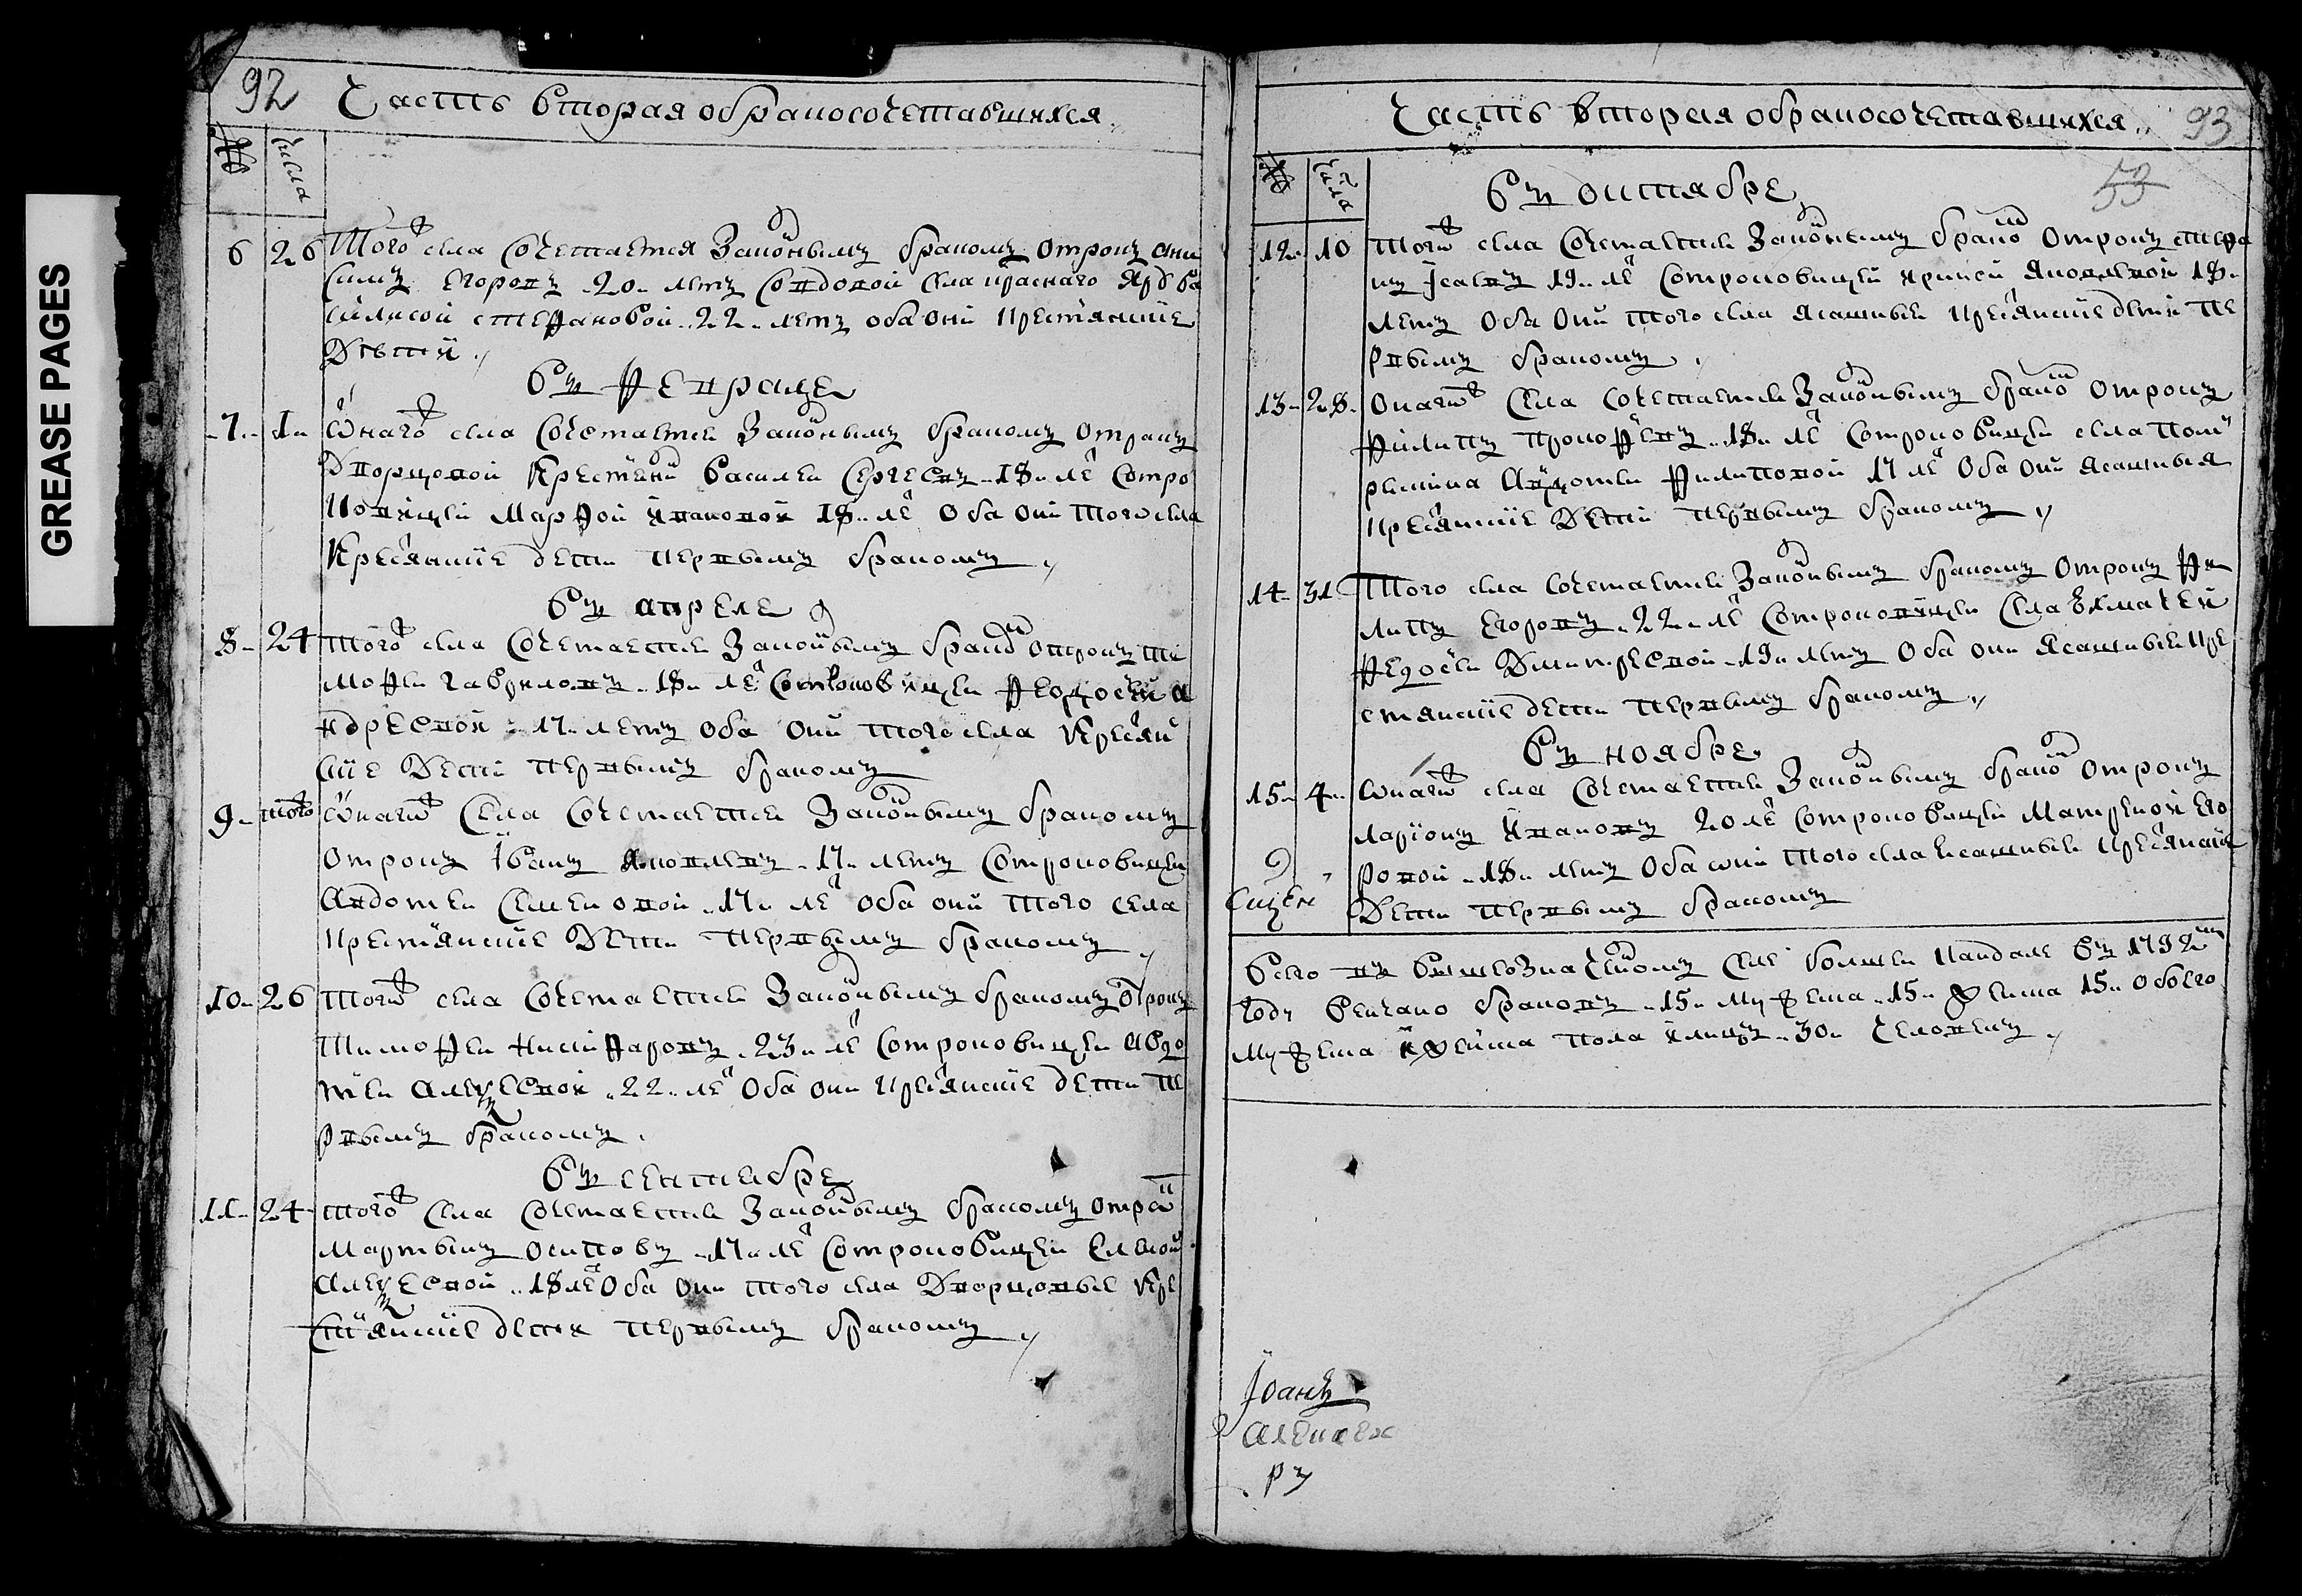 GREASE PAGES
92 Часть вторая о бракосочетавшихся
№ числа
6 26 Того ж села сочетается законнымъ бракомъ отрокъ Они
симъ Егоровъ 20 летъ со вдовой села Красного Яр Ва
силисой Стефановой 22 летъ оба они крестянские
дѣти
въ Феврале
7 1 Онаго ж села сочетается законнымъ бракомъ отрокъ
дворцовой крестянинъ Василей Сергеевъ 18 ле с отро
ковицей Марфой Ивановой 18 ле оба они того села
крестянские дети первымъ бракомъ
въ апреле
8 24 Того ж села сочетается законнымъ браком отрокъ Ти
мофей Гавриловъ 18 ле с отроковицей Федосей А
ндреевой 17 летъ оба они того села крестян
ские дети первымъ бракомъ
9 того Онаго ж села сочетается законнымъ бракомъ
отрокъ Иванъ Яковлевъ 17 летъ с отроковицей
Авдотьей Семеновой 17 ле оба они того села
крестянские дети первымъ бракомъ
10 26 Того ж села сочетается законнымъ бракомъ отрокъ
Тимофей Никифаровъ 23 ле с отроковицей Авдо
тьей Алексеевой 22 ле оба они крестянские дети пе
рвымъ бракомъ
въ сентябре
11 24 Того ж села сочетается законнымъ бракомъ отрок
Мартынъ Осиповъ 17 ле с отроковицей Еленой
Алексеевой 18 ле оба они того села дворцовые кре
стянские дети первымъ бракомъ
Часть вторая о бракосочетавшихся 93
53
№ числа
въ октябре
12 10 Того ж села сочетается законнымъ браком отрокъ Стефа
нъ Исаевъ 19 ле с отроковицей Ириной Яковлевой 18
летъ оба они того села ясашные крестянские дети пе
рвымъ бракомъ
13 28 Онаго ж села сочетается законнымъ браком отрокъ
Филиппъ Прокофьевъ 18 ле с отроковицей села
Авдотьей Филиповой 17 ле оба они ясашныя
крестянские дети первымъ бракомъ
14 31 Того села сочетается законнымъ бракомъ отрокъ Фи
липпъ Егоровъ 22 ле с отроковицей села
Федосей Дмитреевой 19 летъ оба они ясашные кре
стянские дети первымъ бракомъ
въ ноябре
15 4 Онаго ж села сочетается законнымъ браком отрокъ
Ларионъ Ивановъ 20 ле с отроковицей Матреной Его
ровой 18 летъ оба они того села ясашные крестянские
дети первымъ бракомъ
Всего въ вышеозначенномъ селе Болшей Кандале въ 1792м
году венчано браковъ 15 мужеска 15 женска 15 обоего
мужеска и женска пола и лицъ 30 человекъ
Иоанъ
Алексее
ръ